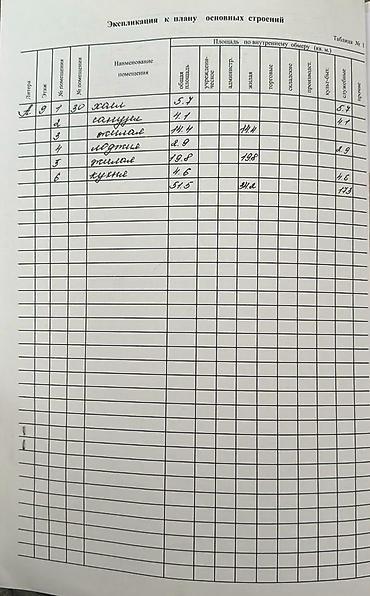 Экспликация к плану основных строений
Таблица № 1
Литера
Этаж
№ помещения
№ помещения
Наименование помещения
Площадь по внутреннему обмеру (кв. м.)
общая площадь
учрежденческое
администр.
жилая
торговые
складские
производст.
культ-быт.
служебные
прочие
А 9 1 30 холл 5.7 5.7
2 санузел 4.1 4.1
3 жилая 14.4 14.4
4 лоджия 2.9 2.9
5 жилая 19.8 19.8
6 кухня 4.6 4.6
51.5 34.2 17.3